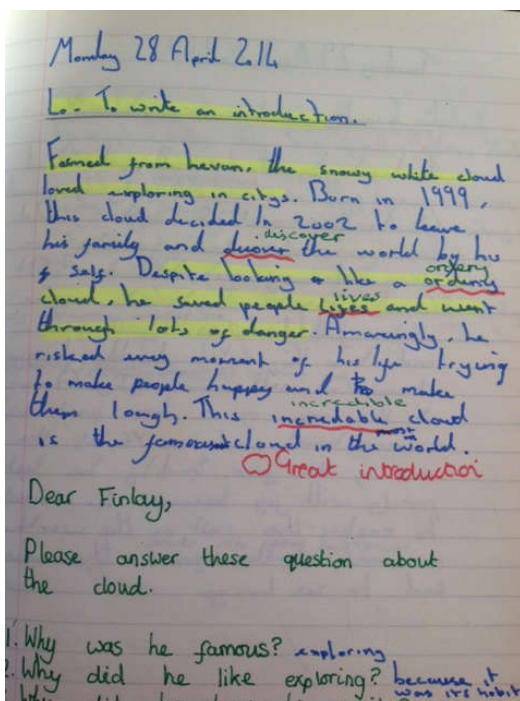 Monday 28 April 2014
L.o. To write an introduction.
Formed from hevan, the snowy white cloud
loved exploring in citys. Born in 1999,
this cloud decided In 2002 to leave
discover
his family and dicover the world by his
ordenry
self. Despite looking like a ordenry
lives
cloud, he saved people lifes and went
through lots of danger. Amazingly, he
risked evry moment of his life trying
to make people happey and to make
incredible
them lough. This incredable cloud
most
is the famousest cloud in the world.
Great introduction
Dear Finlay,
Please answer these question about
the cloud.
1. Why was he famous? exploring
2. Why did he like exploring? because it
was its habit